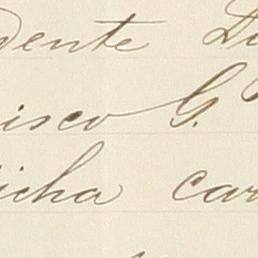 dente
isco G.
dicha car